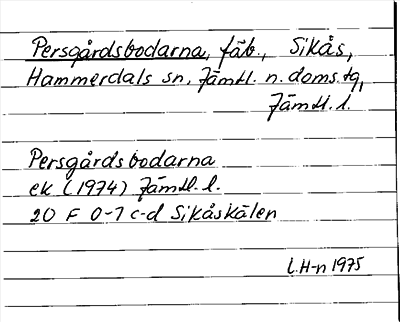 Persgårdsbodarna, fäb., Sikås,
Hammerdals sn, Jämtl. n. doms. tg,
Jämtl. l.
Persgårdsbodarna
ek (1974) Jämtl. l.
20 F 0-1 c-d Sikåskälen
L.H-n 1975